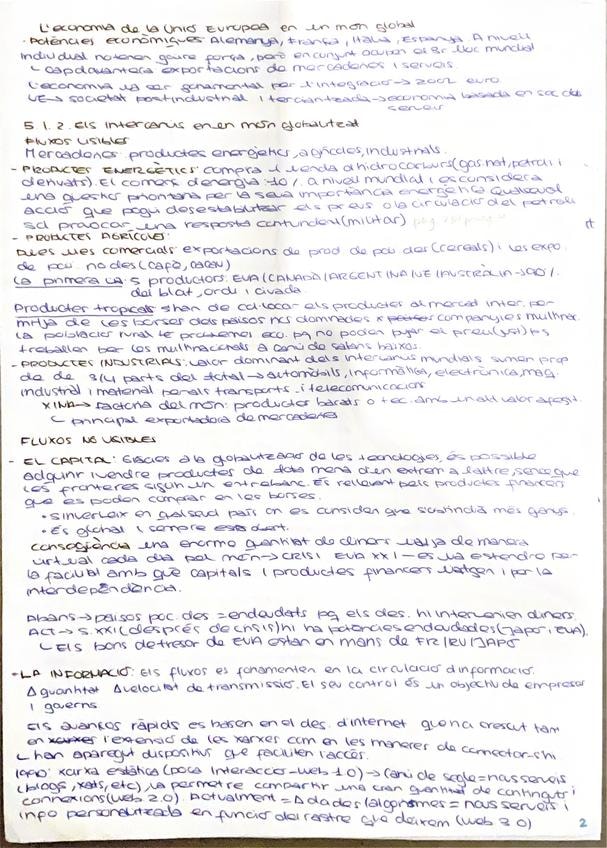 L'economia de la Unió Europea en un món global
· Potències econòmiques: Alemanya, França, Itàlia, Espanya. A nivell
individual no tenen gaire força, però en conjunt ocupen el 3r lloc mundial
↳ capdavantera exportacions de mercaderies i serveis.
L'economia va ser fonamental per l'integració → 2002 euro.
UE → societat postindustrial i terciaritzada → economia basada en soc. dels
serveis
5.1.2. Els intercanvis en un món globalitzat
FLUXOS VISIBLES
Mercaderies: productes energètics, agrícoles, industrials.
- PRODUCTES ENERGÈTICS: compra i venda d'hidrocarburs (gas nat, petroli i
derivats). El comerç d'energia: 10% a nivell mundial i es considera
una qüestió prioritària per la seva importància energètica. Qualsevol
acció que pogui desestabilitzar els preus o la circulació del petroli
sol provocar una resposta contundent (militar)
- PRODUCTES AGRÍCOLES:
Dues vies comercials: exportacions de prod de pai. des (cereals) i les expo.
de pai. no des (cafè, cacau)
La primera la 5 productors: EUA/CANADÀ/ARGENTINA/UE/AUSTRÀLIA → 90%
del blat, ordi i civada
Productes tropicals s'han de col·locar els productes al mercat inter. per
mitjà de les borses dels països rics dominades x companyies multinac.
La població rural té problemes eco. pq no poden pujar el preu (just) i es
treballen per les multinacionals a canvi de salaris baixos.
- PRODUCTES INDUSTRIALS: valor dominant dels intercanvis mundials, sumen prop
de de 3/4 parts del total → automòbils, informàtica, electrònica, maq.
industrial i material pels transports i telecomunicacions
XINA → factoria del món: productes barats o tec. amb un alt valor afegit.
↳ principal exportadora de mercaderies
FLUXOS NO VISIBLES
- EL CAPITAL: Gràcies a la globalització de les tecnologies, és possible
adquirir i vendre productes de tota mena d'un extrem a l'altre, sense que
les fronteres siguin un entrebanc. És rellevant pels productes financers
que es poden comprar en les borses.
• s'inverteix en qualsevol país on es consideri que s'obtindrà més guanys.
• És global i sempre està obert.
Conseqüència una enorme quantitat de diners viatja de manera
virtual cada dia pel món → CRISI EUA XXI - es va estendre per
la facilitat amb què capitals i productes financers viatgen i per la
interdependència.
Abans → països poc. des = endeudats pq els des. hi intervenien diners.
ACT → S.XXI (després de crisis) hi ha potències endeudades (Japó i EUA).
↳ Els bons de tresor de EUA estan en mans de FR/RU/JAPÓ
• LA INFORMACIÓ: Els fluxos es fonamenten en la circulació d'informació.
Δ quantitat Δ velocitat de transmissió. El seu control és un objectiu de empreses
i governs.
Els avanços ràpids es basen en el des. d'internet que ha crescut tant
en l'extensió de les xarxes com en les maneres de connectar-s'hi
↳ han aparegut dispositius que faciliten l'accés.
1990: xarxa estàtica (poca interacció - web 1.0) → canvi de segle = nous serveis
(blogs, xats, etc) va permetre compartir una gran quantitat de contingut i
connexions (web 2.0). Actualment = Δ dades (algoritmes = nous serveis i
info personalitzada en funció del rastre que deixem (web 3.0)
2